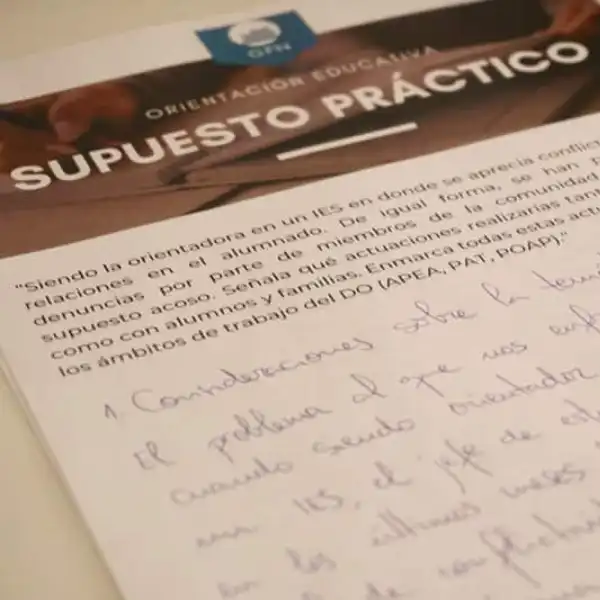 GFN
ORIENTACIÓN EDUCATIVA
SUPUESTO PRÁCTICO
"Siendo la orientadora en un IES en donde se aprecia conflic
relaciones en el alumnado. De igual forma, se han p
denuncias por parte de miembros de la comunidad
supuesto acoso. Señala qué actuaciones realizarías tant
como con alumnos y familias. Enmarca todas estas actu
los ámbitos de trabajo del DO (APEA, PAT, POAP)."
1. Consideraciones sobre la
El problema al que nos
cuando siendo orientador
un IES, el jefe de
en los últimos meses
de